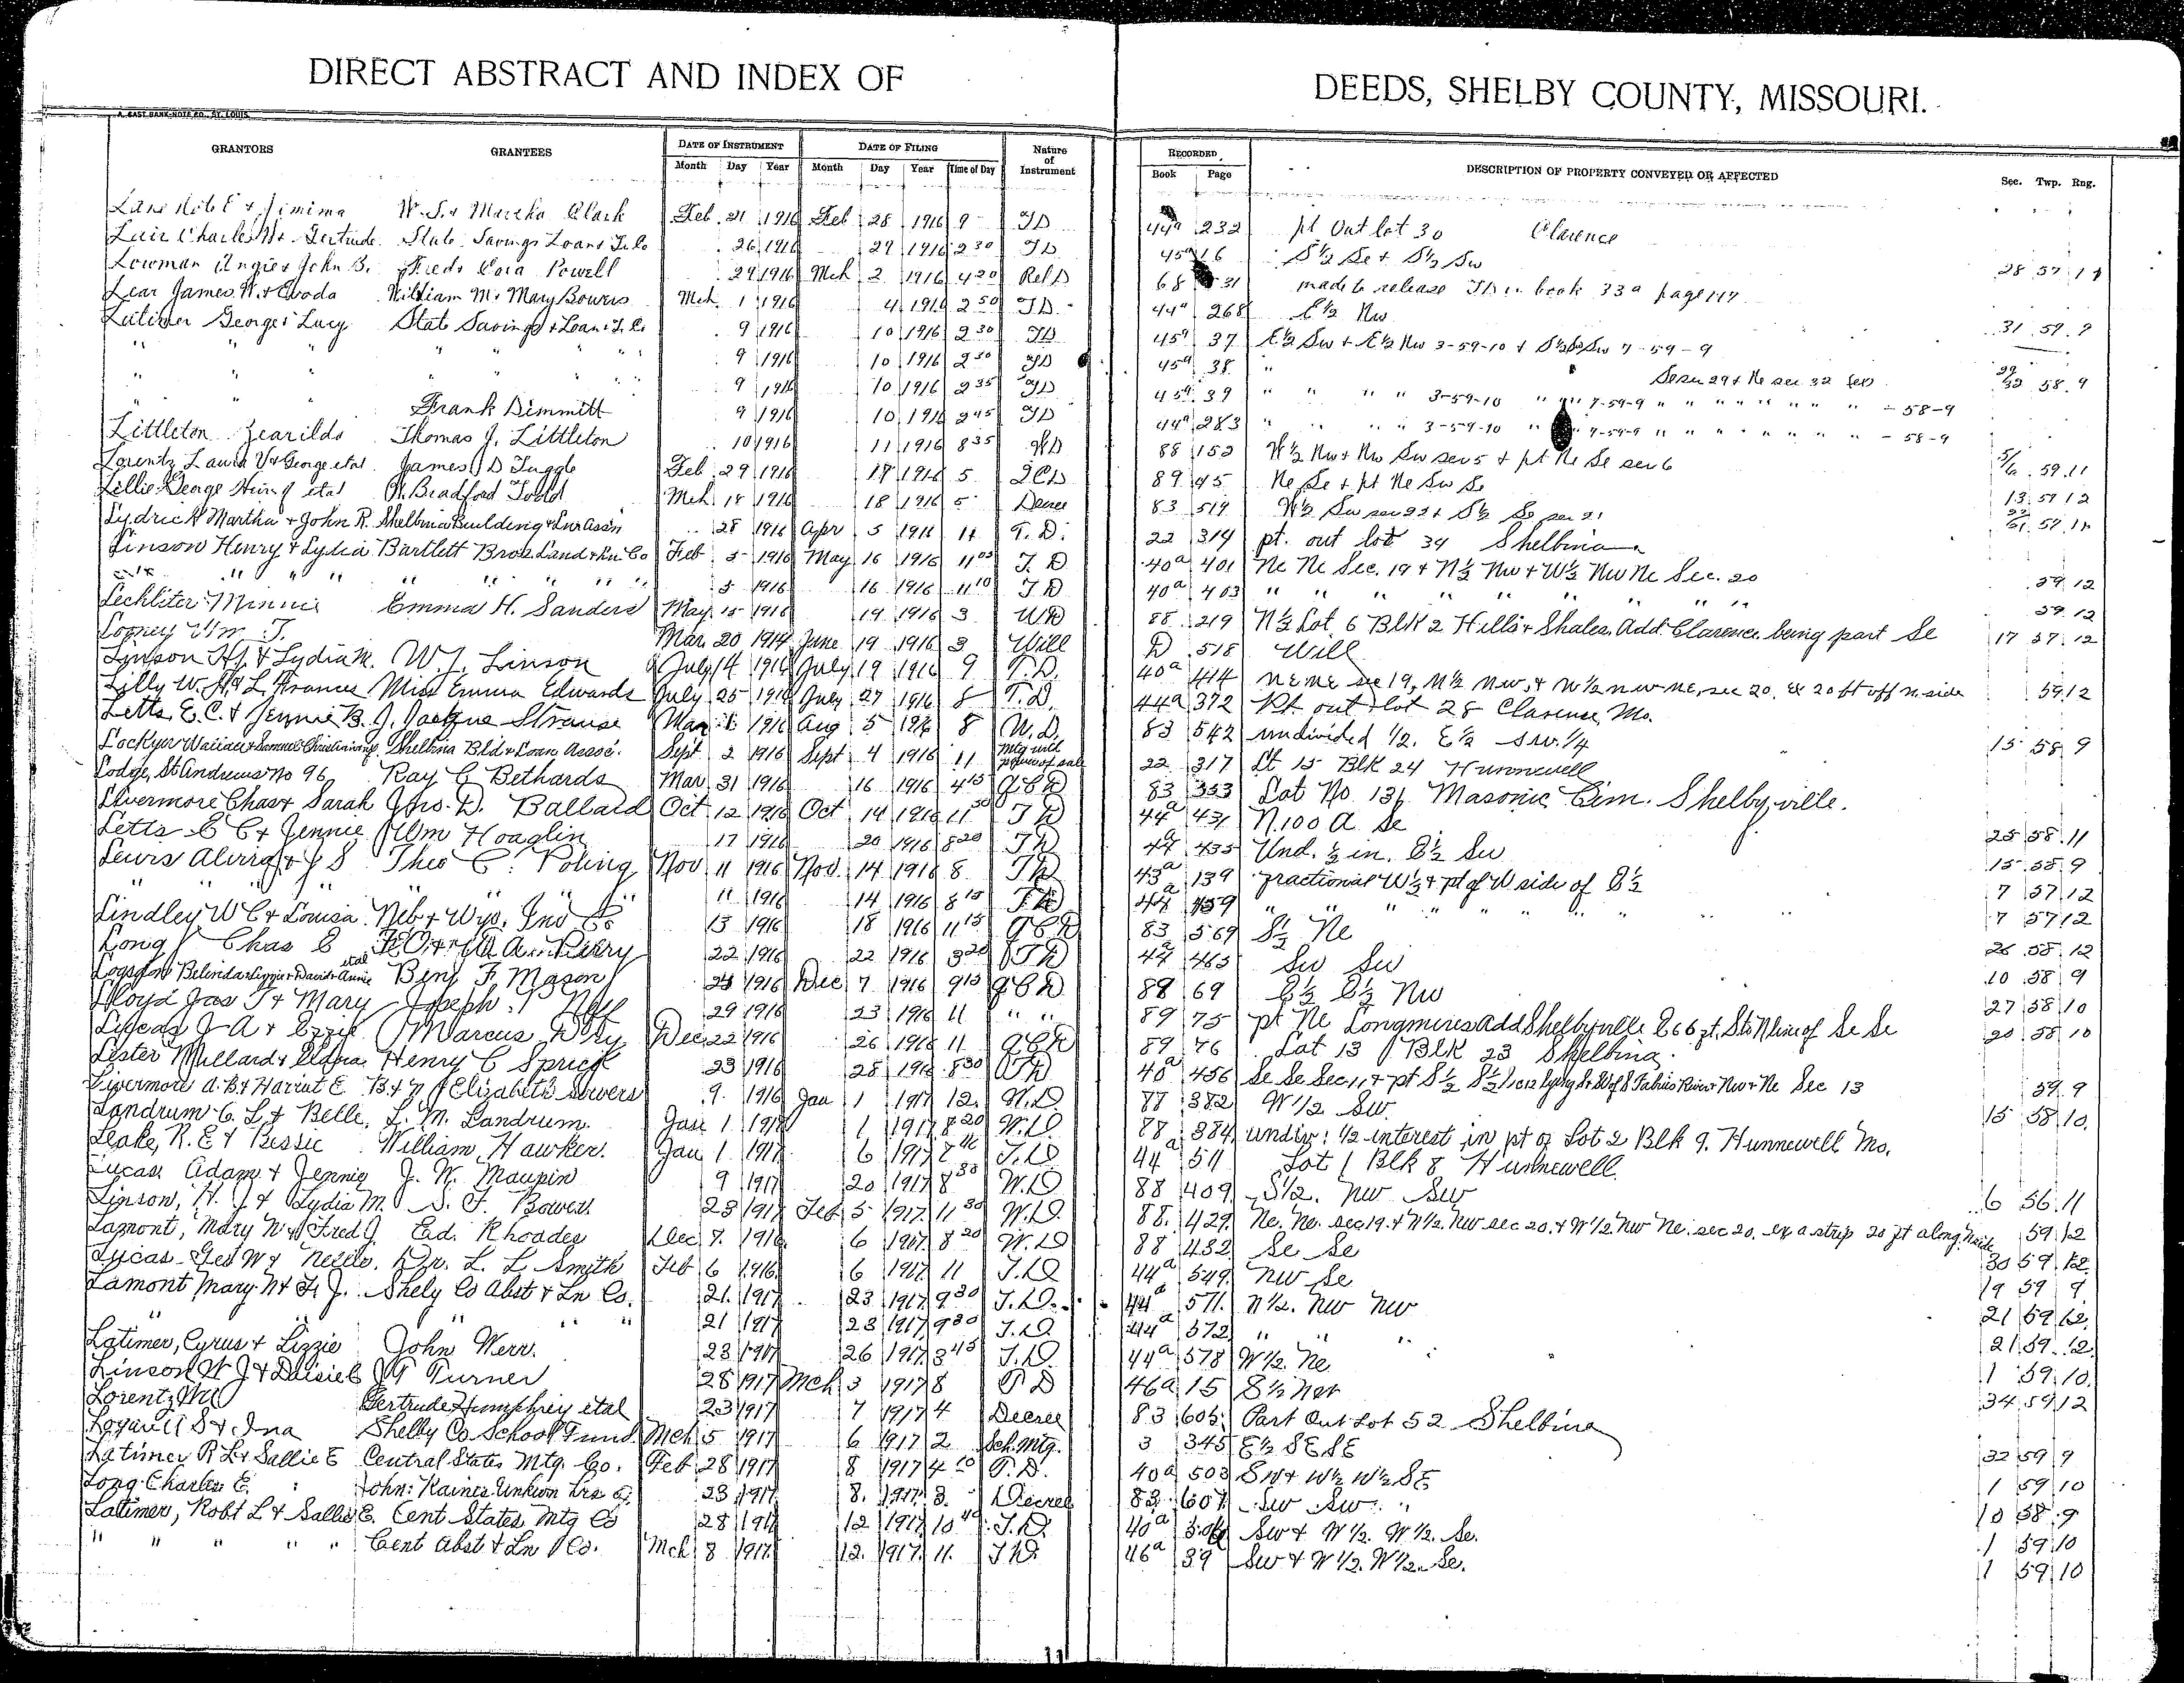 DIRECT ABSTRACT AND INDEX OF DEEDS, SHELBY COUNTY, MISSOURI.
GRANTORS GRANTEES DATE OF INSTRUMENT DATE OF FILING Nature of Instrument RECORDED DESCRIPTION OF PROPERTY CONVEYED OR AFFECTED Sec. Twp. Rng.
Month Day Year Month Day Year Time of Day Book Page
Lane Robt E & Jimima W. S. & Martha Clark Feb 21 1916 Feb 28 1916 9 TD 44a 232 pt Out lot 30 Clarence
Lair Charles & Gertrude State Savings Loan & Tr Co 26 1916 29 1916 2 30 TD 45a 16 S½ Se & S½ Sw 28 57 11
Lowman Angie & John B. Fred & Cora Powell 29 1916 Mch 2 1916 4 20 Rel D 68 31 made to release TD in book 33a page 117
Lear James W. & Evoda William M & Mary Bowers Mch 1 1916 4 1916 2 50 TD 44a 268 E½ Nw 31 59 9
Latimer George & Lucy State Savings & Loan & Tr Co 9 1916 10 1916 2 30 TD 45a 37 E½ Sw & E½ Nw 3-59-10 & Sw 7-59-9
" " " " 9 1916 10 1916 2 30 TD 45a 38 " Se sec 29 & Ne sec 32 29/32 58 9
" " " " 9 1916 10 1916 2 35 TD 45a 39 " " " " 3-59-10 " " 7-59-9 " " " " " " - 58-9
" " " Frank Dimmitt 9 1916 10 1916 2 45 TD 44a 283 " " " 3-59-10 " 7-59-9 " " " " " " - 58-9
Littleton Zearilda Thomas J. Littleton 10 1916 11 1916 8 35 WD 88 152 W½ Nw & Nw Sw sec 5 & pt Ne Se sec 6 5/6 59 11
Lorentz Laura V & George etal. James D Tuggle Feb 29 1916 17 1916 5 QCD 89 45 Ne Se & pt Ne Sw Se 13 57 12
Lillie George Henry etal Bradford Todd Mch 18 1916 18 1916 5 Decree 83 519 W½ Sw sec 22 & S½ Se sec 21
Lydrick Martha & John R. Shelbina Building & Ln Assn 28 1916 Apr 5 1916 11 T. D. 22 314 pt. out lot 34 Shelbina
Linson Henry & Lydia Bartlett Bros. Land & Ln Co Feb 5 1916 May 16 1916 11 05 T. D 40a 401 Ne Ne Sec. 19 & N½ Nw & W½ Nw Ne Sec. 20 59 12
" " " " " " " 5 1916 16 1916 11 10 T D 40a 403 " " " " " " 59 12
Lechliter Minnie Emma H. Sanders May 15 1916 19 1916 3 WD 88 219 N½ Lot 6 Blk 2 Hills & Shales Add. Clarence being part Se 17 57 12
Looney Wm T. Mar. 20 1914 June 19 1916 3 Will D 518 Will
Linson H. J. & Lydia M. W. J. Linson July 14 1916 July 19 1916 9 T. D. 40a 414 NE NE sec 19, N½ NW, & W½ NW NE, sec 20, Ex 20 ft off N side 59 12
Lilly W. H. & L. Frances Miss Emma Edwards July 25 1916 July 27 1916 8 T. D. 44a 372 Pt. out lot 28 Clarence, Mo.
Letts E. C. & Jennie B. J. Jacque Strause Mar. 1 1916 Aug 5 1916 8 W. D. 83 542 undivided ½. E½ SW. ¼ 15 58 9
Shelbina Bld & Loan Assoc. Sept 2 1916 Sept 4 1916 11 Mtg with power of sale 22 317 Lt 15 Blk 24 Hunnewell
Lodge, St Andrews No 96 Ray C Bethards Mar 31 1916 16 1916 4 15 QCD 83 353 Lot No 131 Masonic Cem. Shelbyville.
Livermore Chas & Sarah Jno. D. Ballard Oct 12 1916 Oct 14 1916 11 30 T D 44a 431 N. 100 A Se 25 58 11
Letts E C & Jennie Wm Hoaglin 17 1916 20 1916 8 20 TD 44a 435 Und. ½ in. E½ Sw 15 58 9
Lewis Alvira & J S Theo C. Poling Nov 11 1916 Nov 14 1916 8 TD 43a 139 Fractional W½ & pt of W side of E½ 7 57 12
" " " " " 11 1916 14 1916 8 15 TD 44a 459 " " " " " " 7 57 12
Lindley W C & Louisa Neb & Wyo. Inv Co 13 1916 18 1916 11 15 QCD 83 569 S½ Ne 26 58 12
Long Chas E Perry 22 1916 22 1916 3 20 TD 44a 465 Sw Sw 10 58 9
Logsdon Belinda & Lizzie & David & Annie etal Benj F. Mason 23 1916 Dec 7 1916 9 15 QCD 88 69 E½ E½ Nw 27 58 10
Lloyd Jas T & Mary Joseph 29 1916 23 1916 11 " " 89 75 pt Ne Longmires Add Shelbyville Se Se 20 58 10
Lucas J A & Marcus Dec 22 1916 26 1916 11 QCD 89 76 Lot 13 Blk 23 Shelbina
Lester Millard & Henry C Sprick 23 1916 28 1916 8 30 40a 456 Se Se Sec 11 & pt S½ S½ River Nw & Ne Sec 13 59 9
Livermore A. B. & Harriet E B & Elizabeth Sowers 9 1916 Jan 1 1917 12 W. D. 77 382 W½ SW. 15 58 10
Landrum C. L. & Belle, L. M. Landrum. Jan 1 1917 1 1917 8 20 W. D. 88 384 undiv. ½ interest in pt of Lot 2 Blk 9. Hunnewell Mo.
Leake, R. E & Bessie William Hawker. Jan 1 1917 6 1917 T. D. 44a 511 Lot 1 Blk 8 Hunnewell
Lucas Adam & Jennie J. W. Maupin 9 1917 20 1917 8 30 W. D 88 409 S½. NW SW 6 56 11
Linson, H. J. & Lydia M. S. F. Bower. 23 1917 Feb 5 1917 11 30 W. D. 88 429 Ne. Ne. sec 19. & N½. NW sec 20. & W½ NW Ne. sec 20. ex a strip 20 ft along N side 59 12
Lamont, Mary N & Fred J. Ed. Rhoades Dec 7 1916 6 1917 8 20 W. D 88 432 Se Se 30 59 12
Lucas Geo W & Nettie. Dr. L. L. Smith Feb 6 1916 6 1917 11 T. D 44a 549 NW Se 19 59 9
Lamont Mary N & F. J. Shely Co Abst & Ln Co. 21 1917 23 1917 9 30 T. D. 44a 571 N½. NW NW 21 59 12
" " " " 21 1917 23 1917 9 30 T. D 44a 572 " " " 21 59 12
Latimer, Cyrus & Lizzie John Werr. 23 1917 26 1917 3 45 T. D. 44a 578 W½. Ne 1 59 10
Linson W J & Daisie B J T Turner 28 1917 Mch 3 1917 8 T D 46a 15 34 59 12
Lorentz Gertrude Humphrey etal 23 1917 7 1917 4 Decree 83 605 Part Out Lot 52 Shelbina
& Ina Shelby Co School Fund Mch 5 1917 6 1917 2 Sch. Mtg. 3 345 E½ SE SE 32 59 9
Latimer R L & Sallie E Central States Mtg. Co. Feb 28 1917 8 1917 4 10 T. D. 40a 503 SW & W½ W½ SE 1 59 10
Long Charles E. John 23 1917 8 1917 3 Decree 83 607 SW SW. 10 58 9
Latimer, Robt L & Sallie E. Cent States Mtg Co 28 1917 12 1917 10 40 T. D. 40a SW & W½. W½. Se. 1 59 10
" " " " " Cent Abst & Ln Co. Mch 8 1917 12 1917 11 T D. 46a 39 SW & W½. W½. Se. 1 59 10